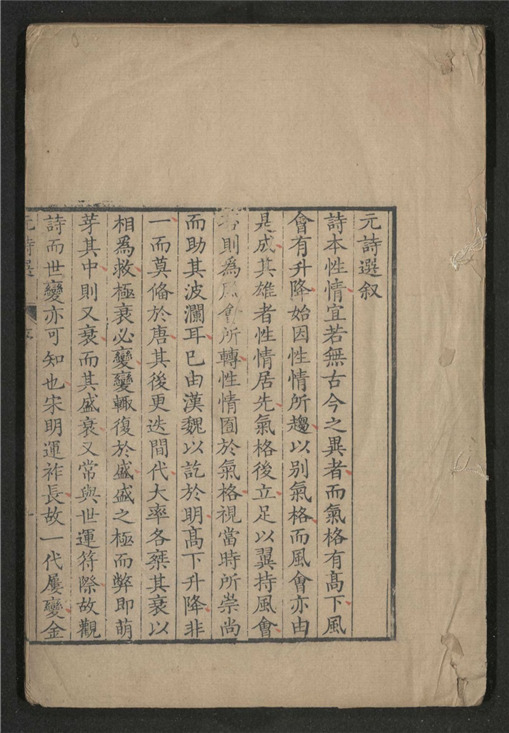 元詩選叙
詩本性情宜若無古今之異者而氣格有髙下風
會有升降始因性情所趨以別氣格而風會亦由
是成其雄者性情居先氣格後立足以翼持風會
否則為風會所轉性情囿於氣格視當時所崇尚
而助其波瀾耳已由漢魏以訖於明髙下升降非
一而莫偹於唐其後更迭間代大率各雍其衰以
相為救極衰必變變輙復於盛盛之極而弊即萌
芽其中則又衰而其盛衰又常與世運符際故觀
詩而世變亦可知也宋明運祚長故一代屢變金
元詩選